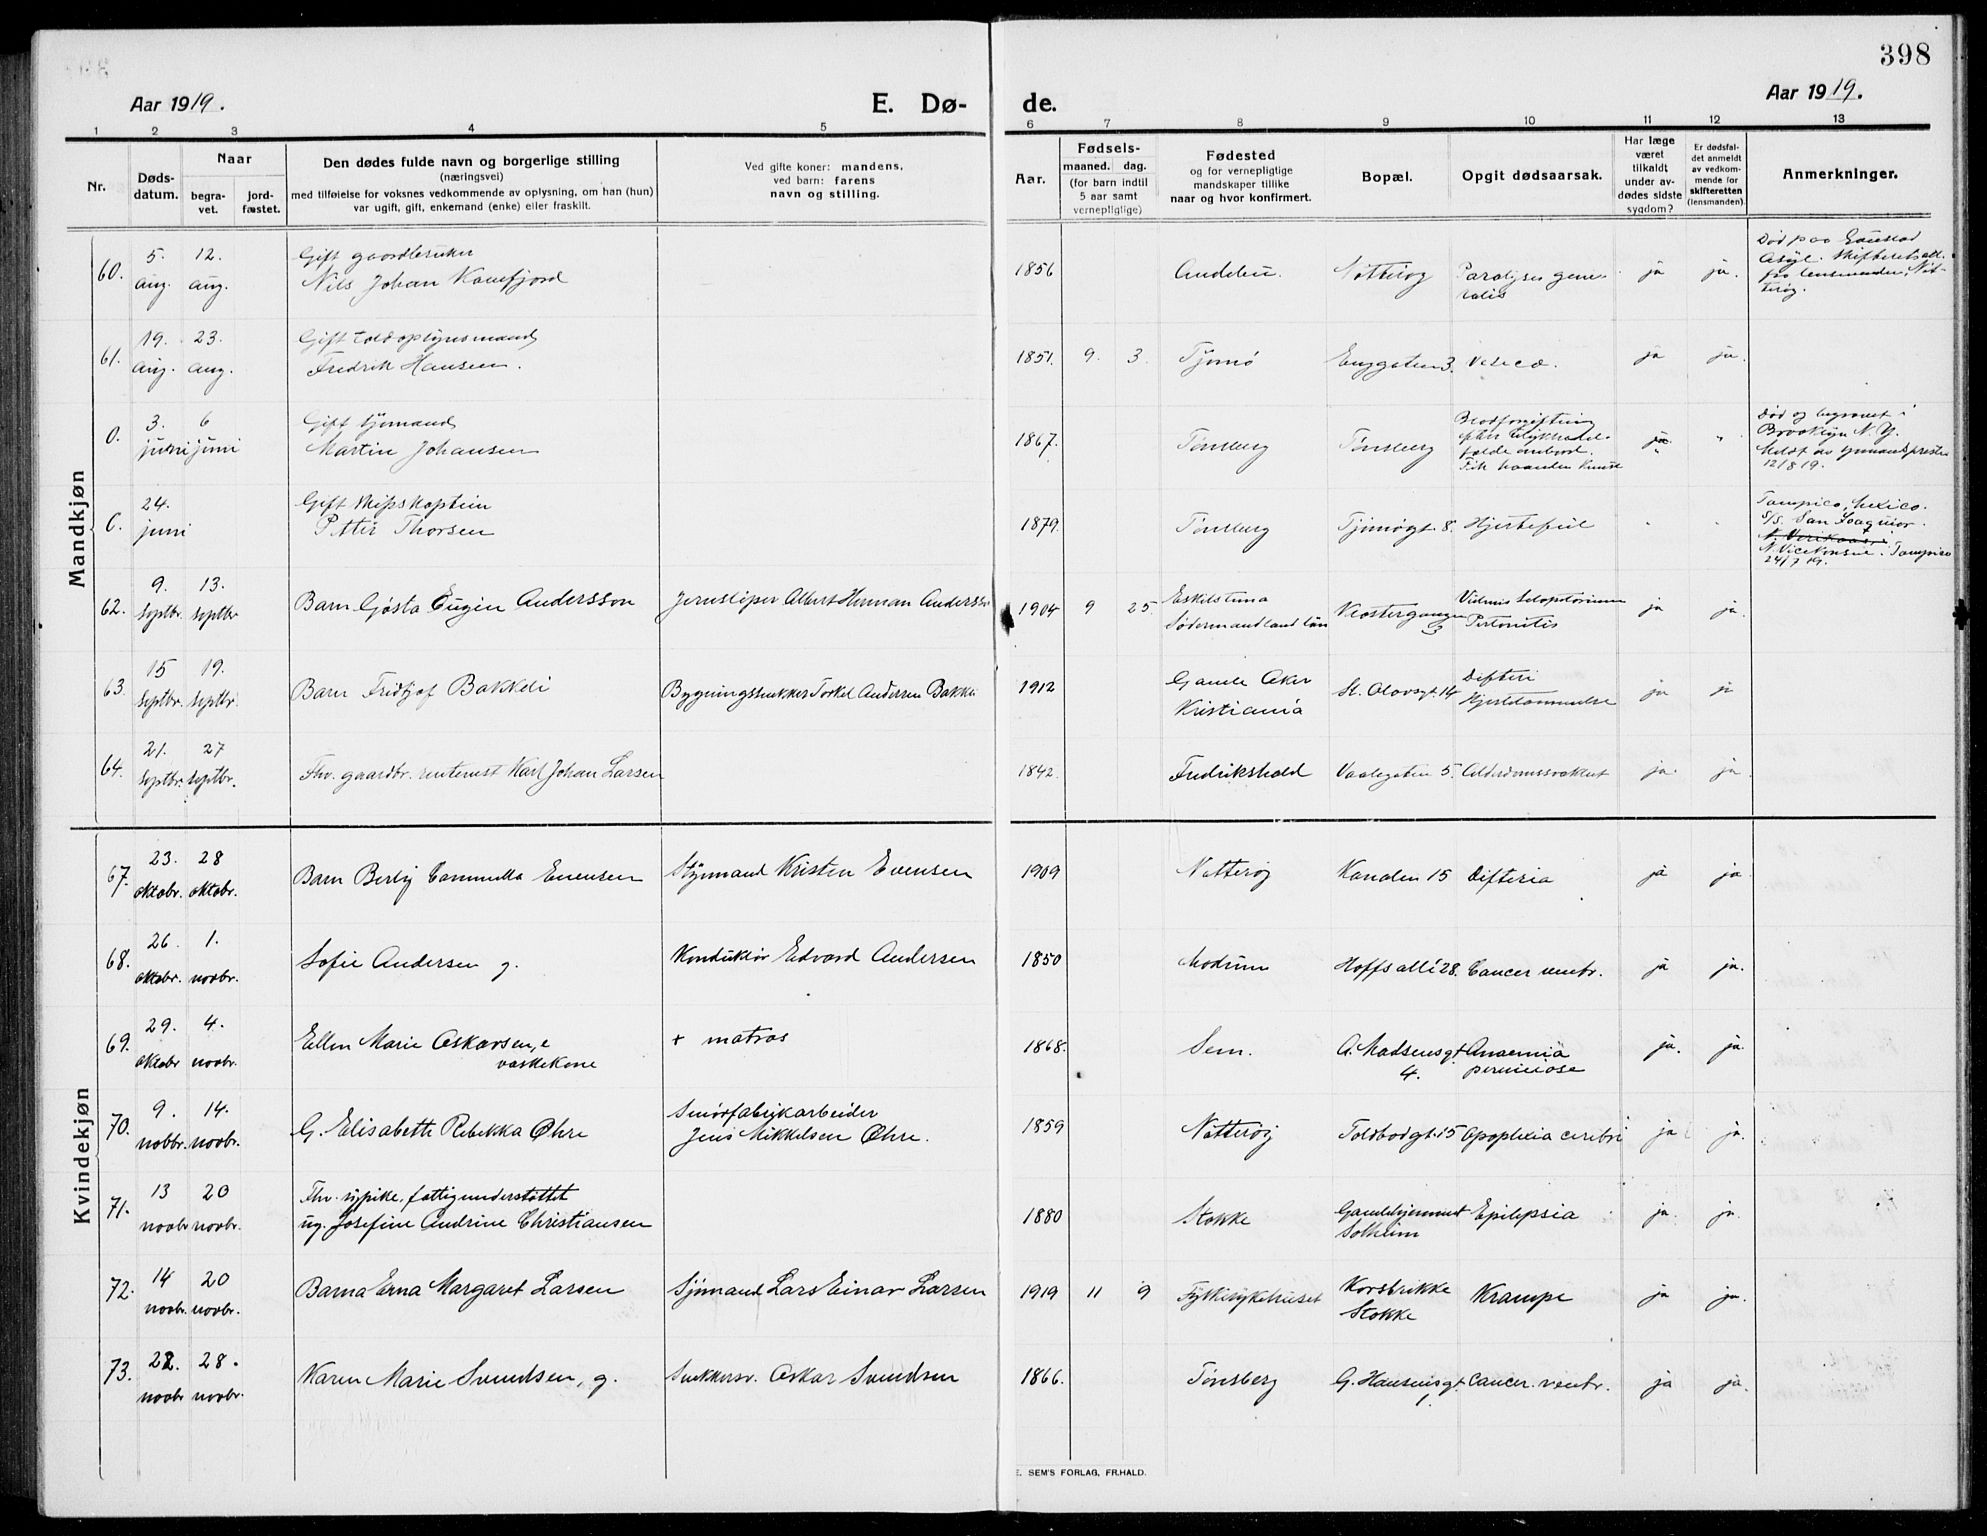 398
Aar 1919.
E. Dø-
de.
Aar 1919.
1 2 3 4 5 6 7 8 9 10 11 12 13
Nr.
Døds-
datum.
Naar
begra-
vet.
jord-
fæstet.
Den dødes fulde navn og borgerlige stilling
(næringsvei)
med tilføielse for voksnes vedkommende av oplysning, om han (hun)
var ugift, gift, enkemand (enke) eller fraskilt.
Ved gifte koner: mandens,
ved barn: farens
navn og stilling.
Aar.
Fødsels-
maaned. dag.
(for barn indtil
5 aar samt
vernepligtige)
Fødested
og for vernepligtige
mandskaper tillike
naar og hvor konfirmert.
Bopæl.
Opgit dødsaarsak.
Har læge
været
tilkaldt
under av-
dødes sidste
sygdom?
Er dødsfal-
det anmeldt
av vedkom-
mende for
skifteretten
(lensmanden).
Anmerkninger.
Mandkjøn
60. 5. aug. 12. aug.
Gift gaardbruker
Nils Johan
1856 Nøtterøy
Paralyses gene-
ralis
ja ja.
Død paa
Asyl.
fra lensmanden, Nøt-
terøy.
61. 19. aug. 23. aug.
Gift toldopsynsmand
Fredrik Hansen.
1851. 9. 3. Tjømø Enggaten 3. ja ja.
0. 3. juni 6 juni
Gift sjømand
Martin Johansen
1867. Tønsberg Tønsberg
Blodforgiftning
ja. "
Død og begravet i
Brooklyn N. Y.
Meldt av sjømandspresten
12/8 19.
0. 24. juni
Gift skipskaptein
Petter Thorsen
1879. Tønsberg Tjømøgt. 8. Hjertefeil
Tampico, Mexico.
S/S. San Joaquin.
N. Vicekonsul i Tampico
24/7 19.
62. 9. septbr. 13. septbr
Barn Gösta Eugén Andersson
Jernsliper Albert Herman Andersson
1904 9 25.
Eskilstuna
Södermandland län
Klostergangen
3
Pertonitis
ja ja.
63. 15 septbr. 19. septbr.
Barn Fridtjof Bakkeli
Bygningssnekker Torkel Andersen Bakkeli
1912
Gamle Aker
Kristiania
St. Olavsgt. 14
Difteri
Hjertelammelse
ja ja
64. 21. septbr. 27 septbr.
Fhv. gaardbr. rentenist Karl Johan Larsen
1842. Fredrikshald Vaalegaten 5. Alderdomssvakhet ja. ja
Kvindekjøn
67. 23. oktobr. 28 oktobr.
Barn Borly Cammilla Evensen
Styrmand Kristen Evensen
1909 Nøtterøy Kanalen 15 Difteria ja ja.
68. 26. oktobr. 1. novbr.
Sofie Andersen g.
Konduktør Edvard Andersen
1850 Modum Hoffs alle 28. Cancer ventr. ja ja.
69. 29. oktobr 4. novbr.
Ellen Marie Oskarsen, e
vaskekone
+ matros
1868. Sem.
A. Madsensgt.
4.
Anaemia
perniciosa
ja. ja.
70. 9. novbr. 14. novbr.
G. Elisabeth Rebekka Øhre
Smørfabrikarbeider
Jens Mikkelsen Øhre.
1859 Nøtterøy Toldbodgt. 15 Apoplexia cerebri ja ja.
71. 13 novbr 20 novbr.
Fhv. sypike, fattigunderstøttet
ug. Josefine Andrine Christiansen
1880 Stokke
Gamlehjemmet
Solheim
Epilepsia
ja. ja.
72. 14 novbr. 20 novbr.
Barna Erna Margaret Larsen
Sjømand Lars Einar Larsen
1919 11 9 Fylkesykehuset
Korsbrekke
Stokke
Krampe
ja ja.
73. 22. novbr 28. novbr.
Karen Marie Svendsen, g.
Snekkersv. Oskar Svendsen
1866. Tønsberg
G. Hansensgt
1.
Cancer. ventr.
ja ja.
E. SEM'S FORLAG, FR.HALD.